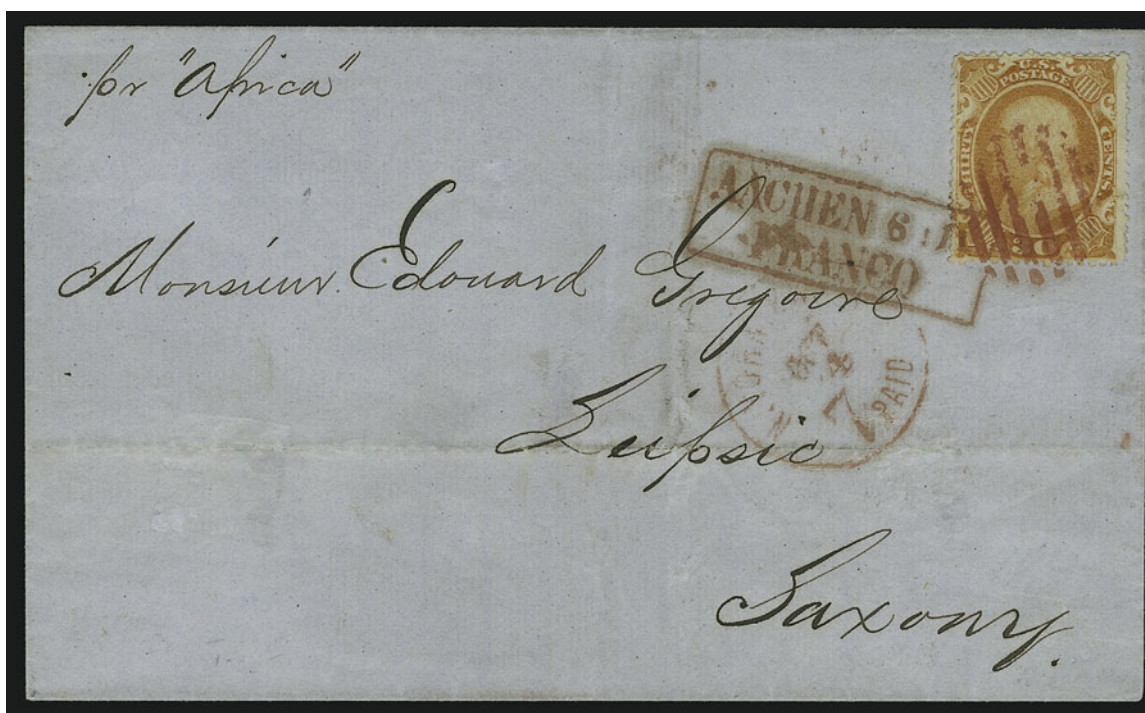 pr "Africa"
U.S.
POSTAGE
THIRTY
CENTS
AACHEN 6
FRANCO
Monsieur Edouard Gregoire
PAID
7
Leipsic
Saxony.